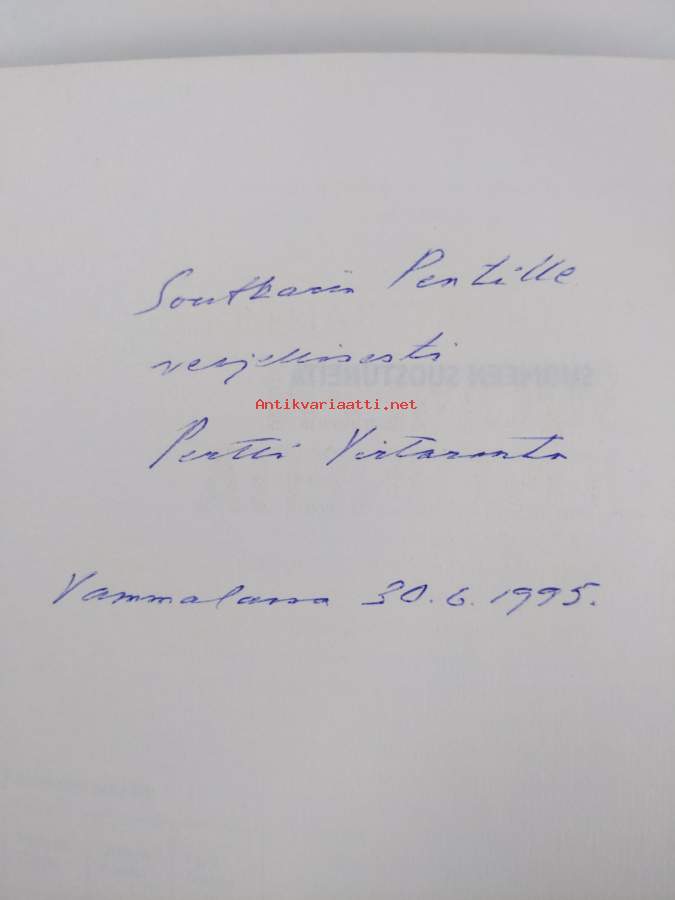 Soutkarin Pentille
veljellisesti
Antikvariaatti.net
Pertti Virtaranta
Vammalassa 30.6.1995.